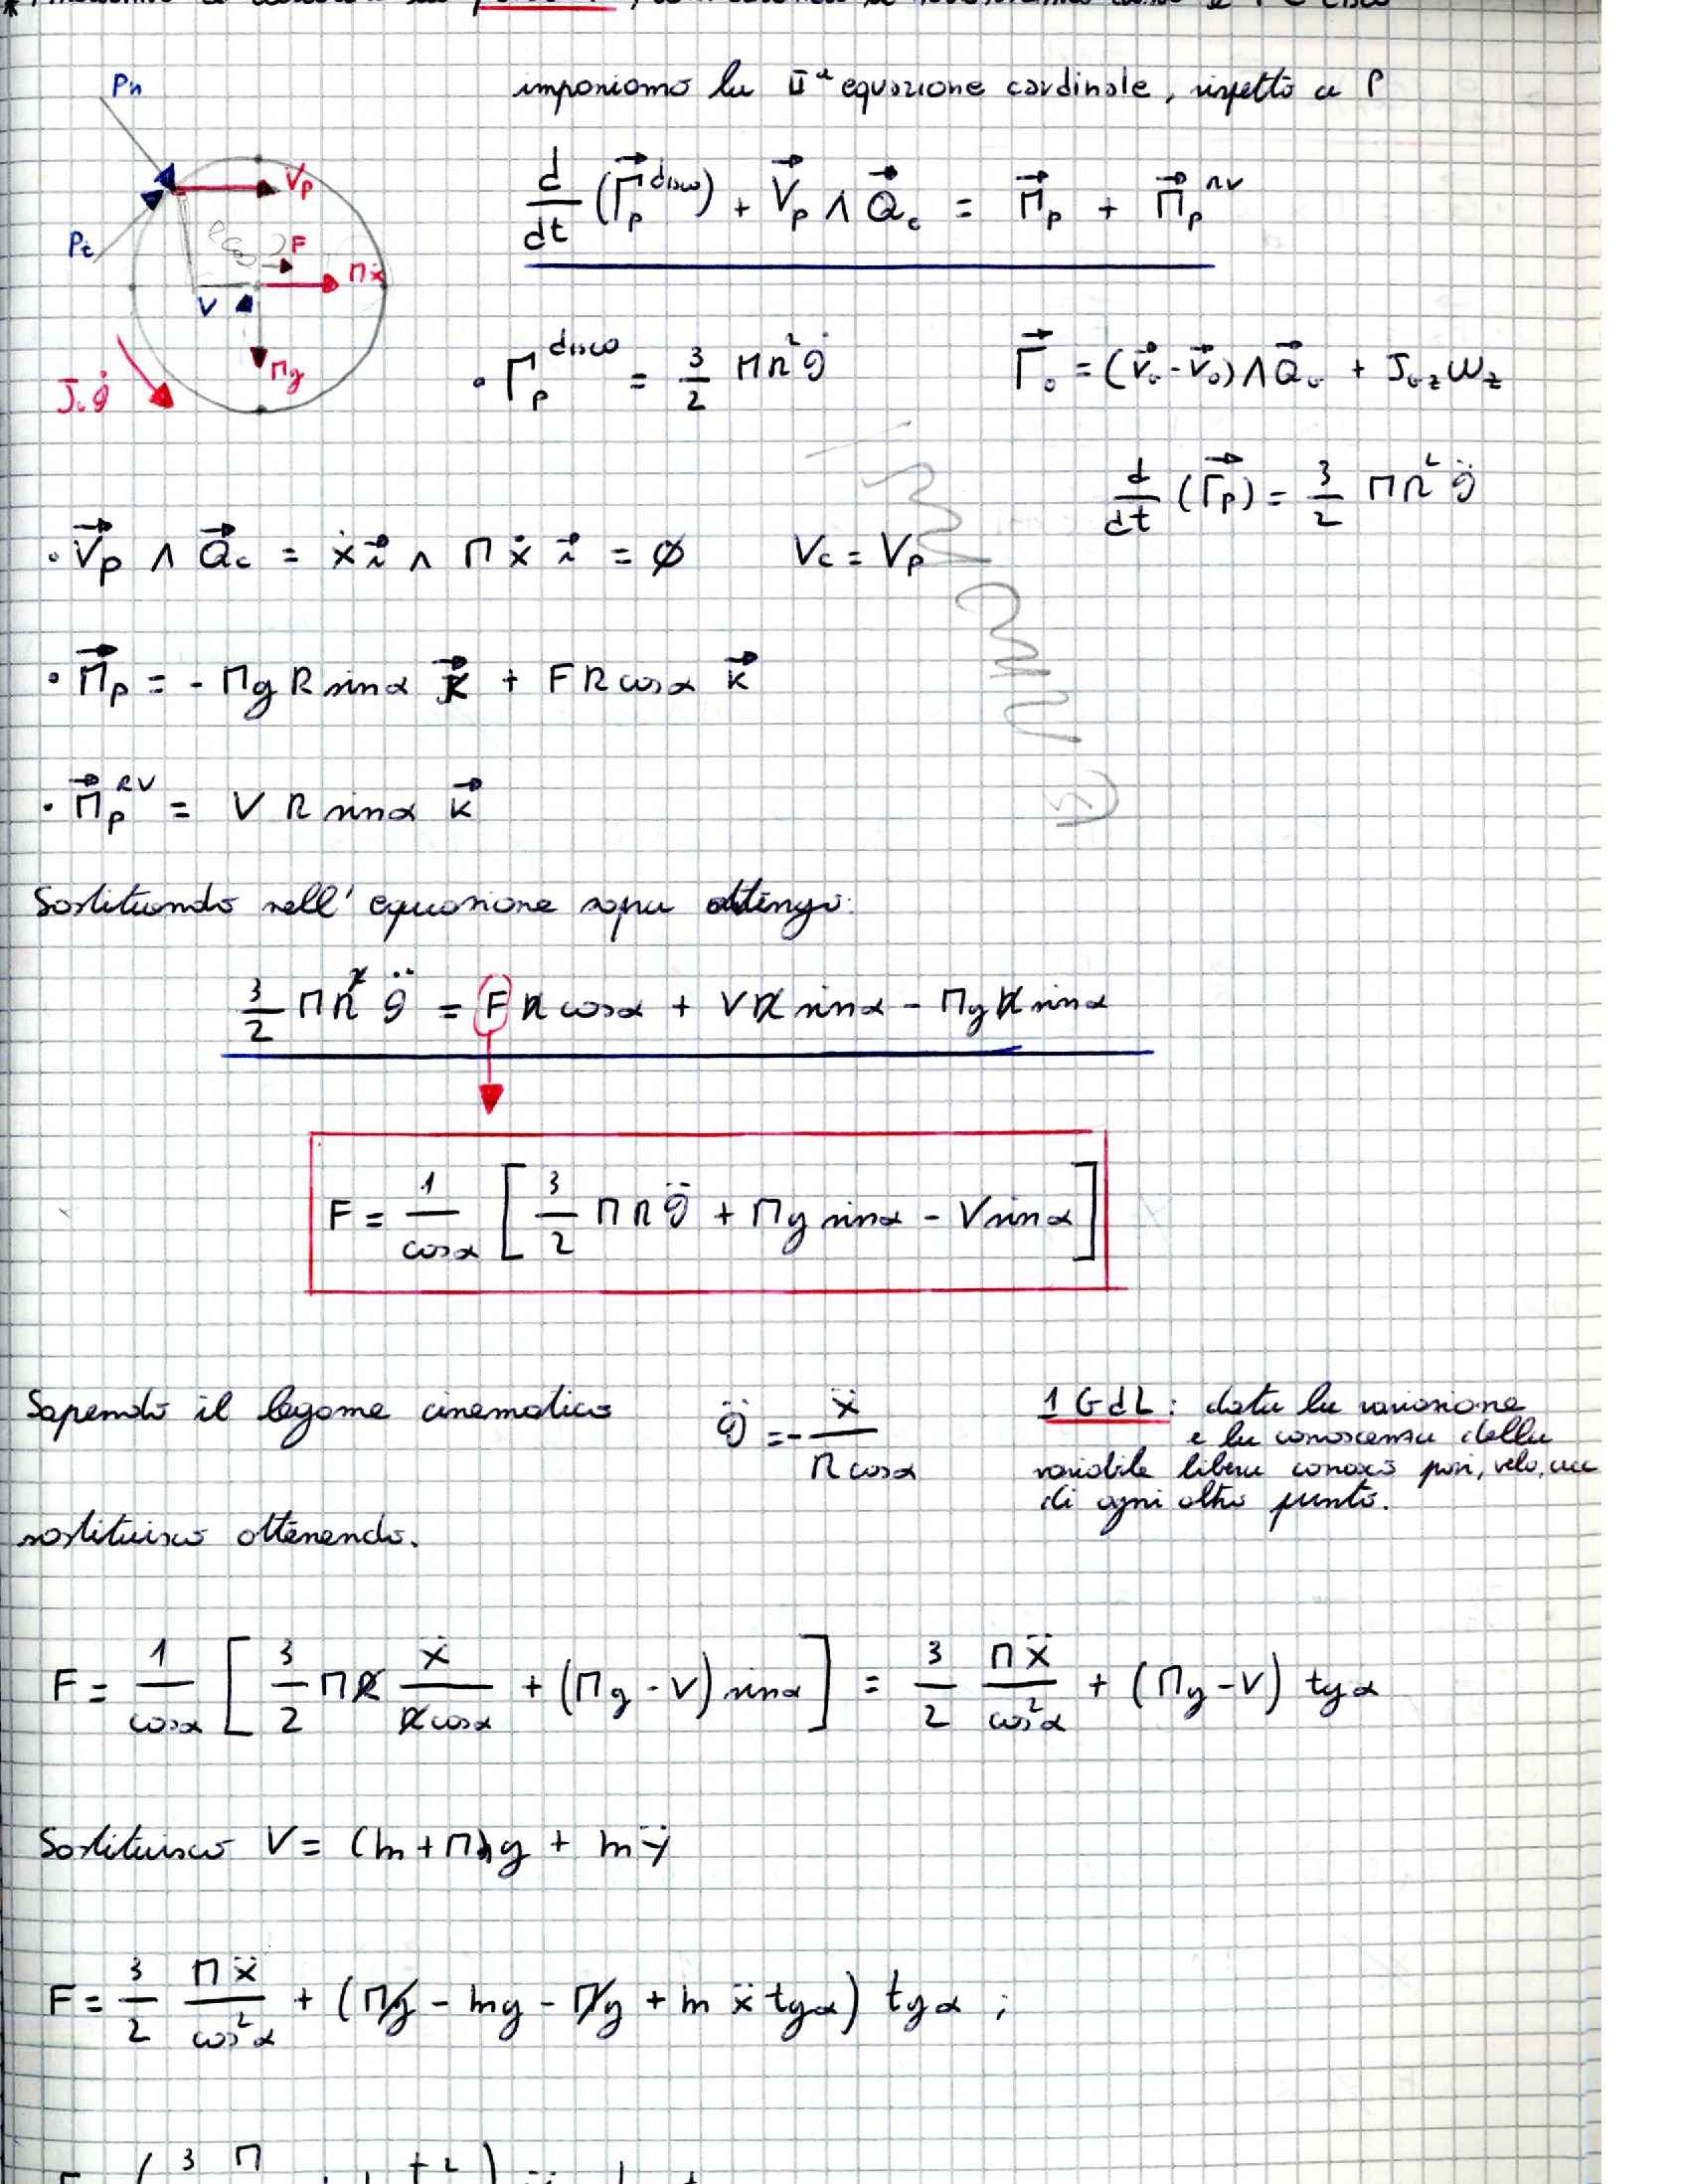 imponiamo la IIª equazione cardinale, rispetto a P
Pn
Vp
d/dt (Γp^disco) + Vp ∧ Qc = Mp + Mp^RV
Pt
F
Mẋ
V
Mg
Jc θ̈
• Γp^disco = 3/2 MR² θ̇
Γo = (vo - vo) ∧ Qo + Joz ωz
d/dt (Γp) = 3/2 MR² θ̈
• Vp ∧ Qc = ẋ i ∧ M ẋ i = ∅ Vc = Vp
• Mp = - Mg R sinα k + F R cosα k
• Mp^RV = V R sinα k
Sostituendo nell' equazione sopra ottengo:
3/2 MR² θ̈ = F R cosα + V R sinα - Mg R sinα
F = 1/cosα [ 3/2 MR θ̈ + Mg sinα - V sinα ]
Sapendo il legame cinematico θ̈ = - ẍ/(R cosα)
1 GdL : data la variazione
e la conoscenza della
variabile libera conosco posi, velo, acc
di ogni altro punto.
sostituisco ottenendo.
F = 1/cosα [ 3/2 MR ẍ/(R cosα) + (Mg - V) sinα ] = 3/2 Mẍ/cos²α + (Mg - V) tgα
Sostituisco V = (m + M) g + m ÿ
F = 3/2 Mẍ/cos²α + (Mg - mg - Mg + m ẍ tgα) tgα ;